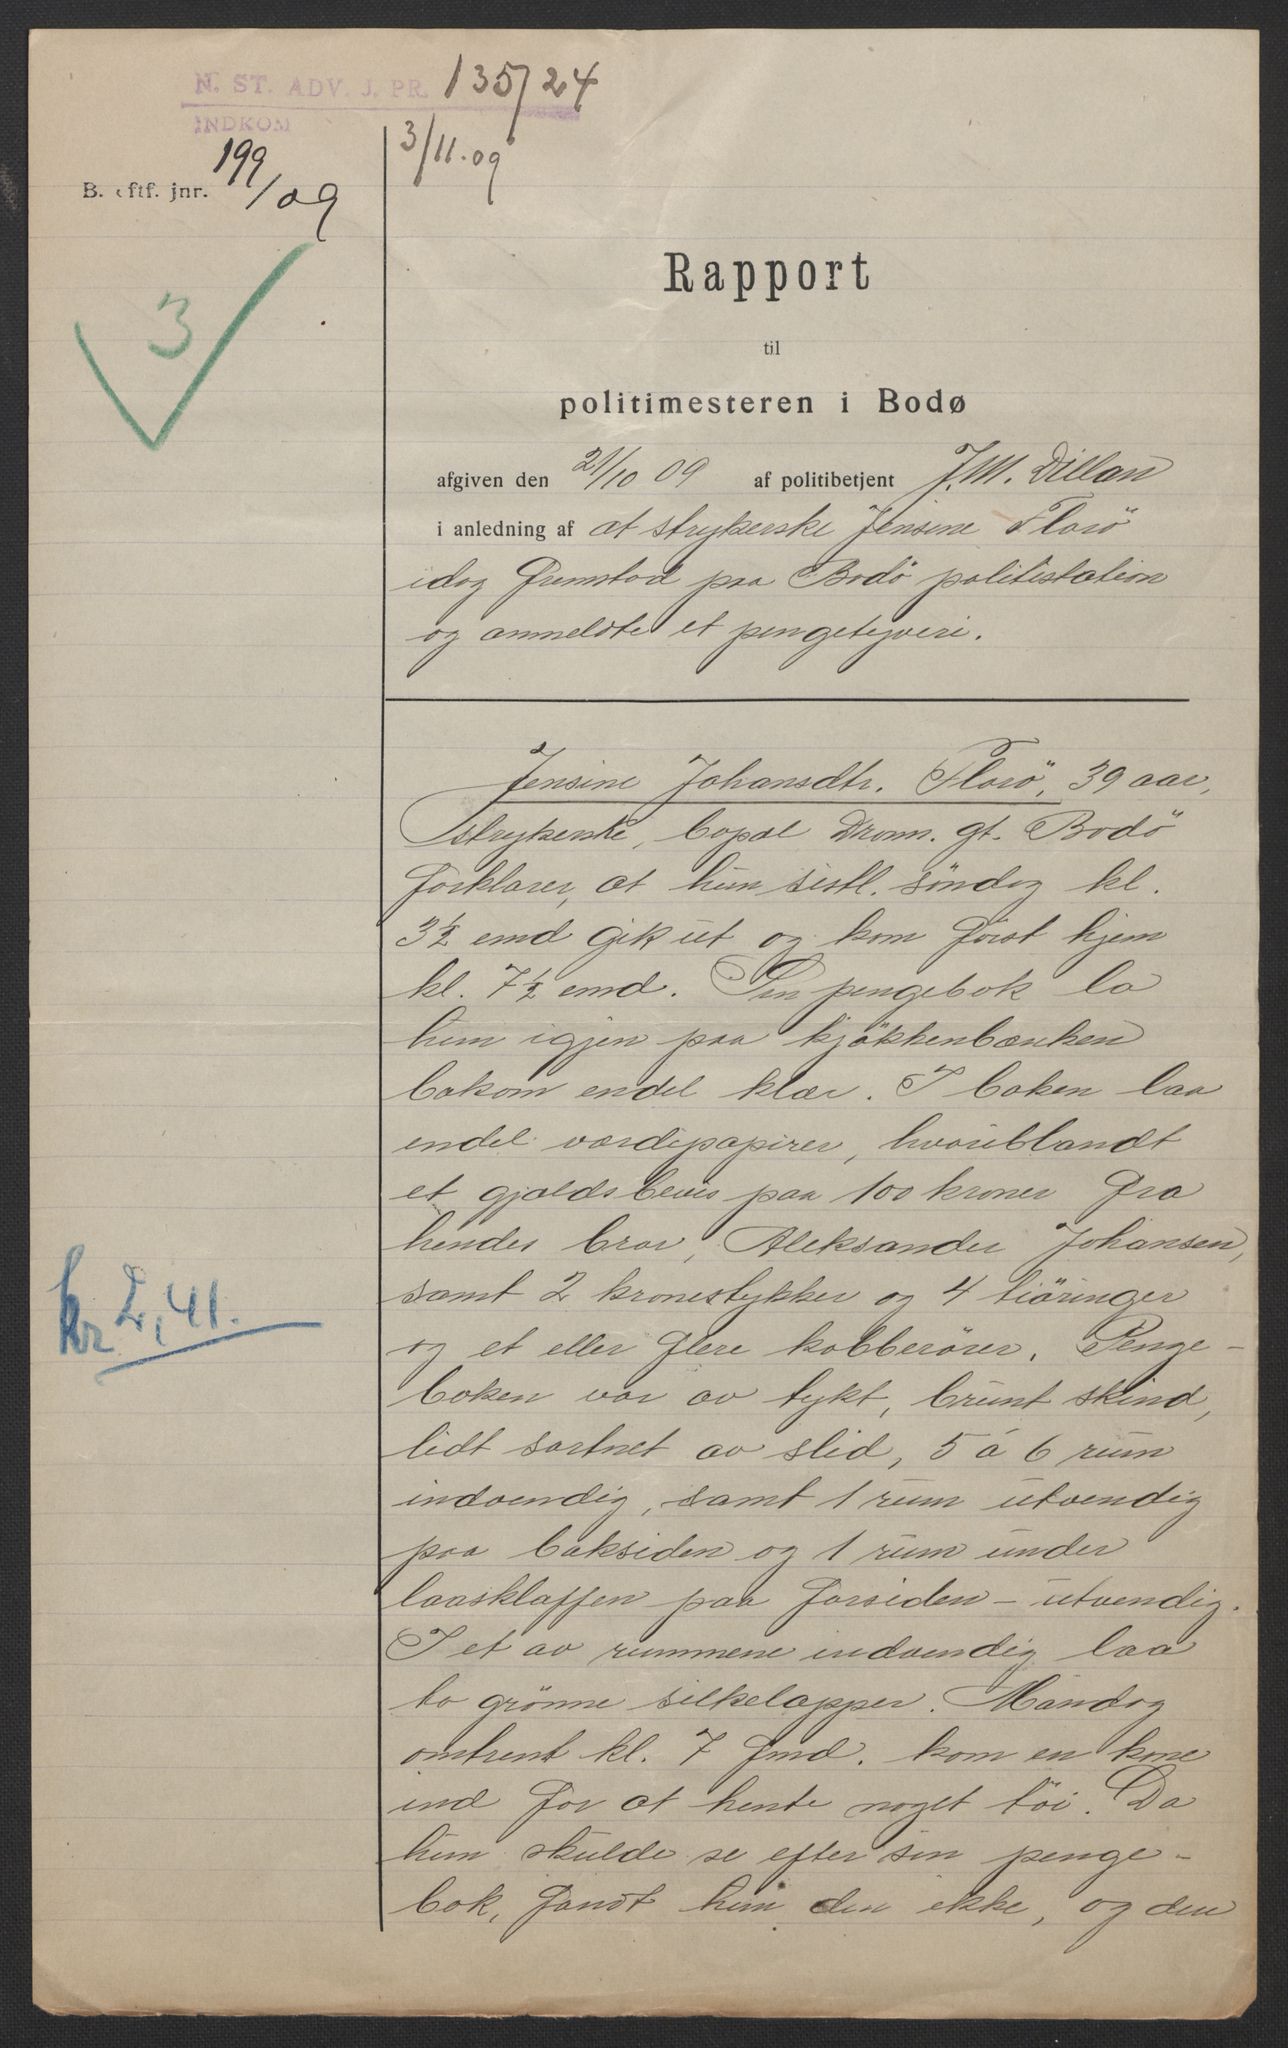 N. ST. ADV. J. PR. 135/24
INDKOM
3/11.09
B. eftf. jnr. 199/09
3
Rapport
til
politimesteren i Bodø
afgiven den 21/10 09 af politibetjent J. M. Dillan
i anledning af at strykerske Jensine Florö
idag fremstod paa Bodö politistation
og anmeldte et pengetyveri.
Jensine Johansdtr. Florö, 39 aar,
strykerske, bopæl Dronn. gt. Bodö
forklarer, at hun sistl. söndag kl.
3½ emd gik ut og kom först hjem
kl. 7½ emd. Sin pengebok la
hun igjen paa kjökkenbænken
bakom endel klær. I boken laa
endel værdipapirer, hvoriblandt
et gjældsbevis paa 100 kroner fra
hendes bror, Aleksander Johansen,
samt 2 kronestykker og 4 tiöringer
og et eller flere kobberörer. Penge-
boken var av tykt, brunt skind,
lidt sortnet av slid, 5 á 6 rum
indvendig, samt 1 rum utvendig
paa baksiden og 1 rum under
laasklaffen paa forsiden - utvendig.
I et av rummene indvendig laa
to grönne silkelapper. Mandag
omtrent kl. 7 fmd. kom en kone
ind for at hente noget töi. Da
hun skulde se efter sin penge-
bok, fandt hun den ikke, og den
kr 2,41.